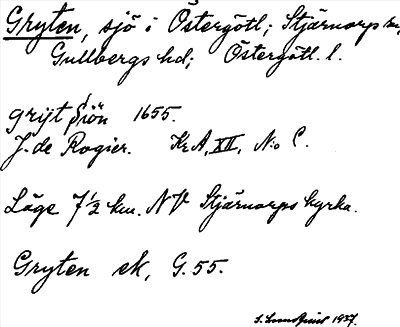 Gryten, sjö i Östergötl; Stjärnorps sn,
Gullbergs hd; Östergötl. l.
grijt Siön 1655.
J. de Rogier. KrA, XII, N:o
Läge 7 1/2 km. NV Stjärnorps kyrka.
Gryten ek, G. 55.
1937.